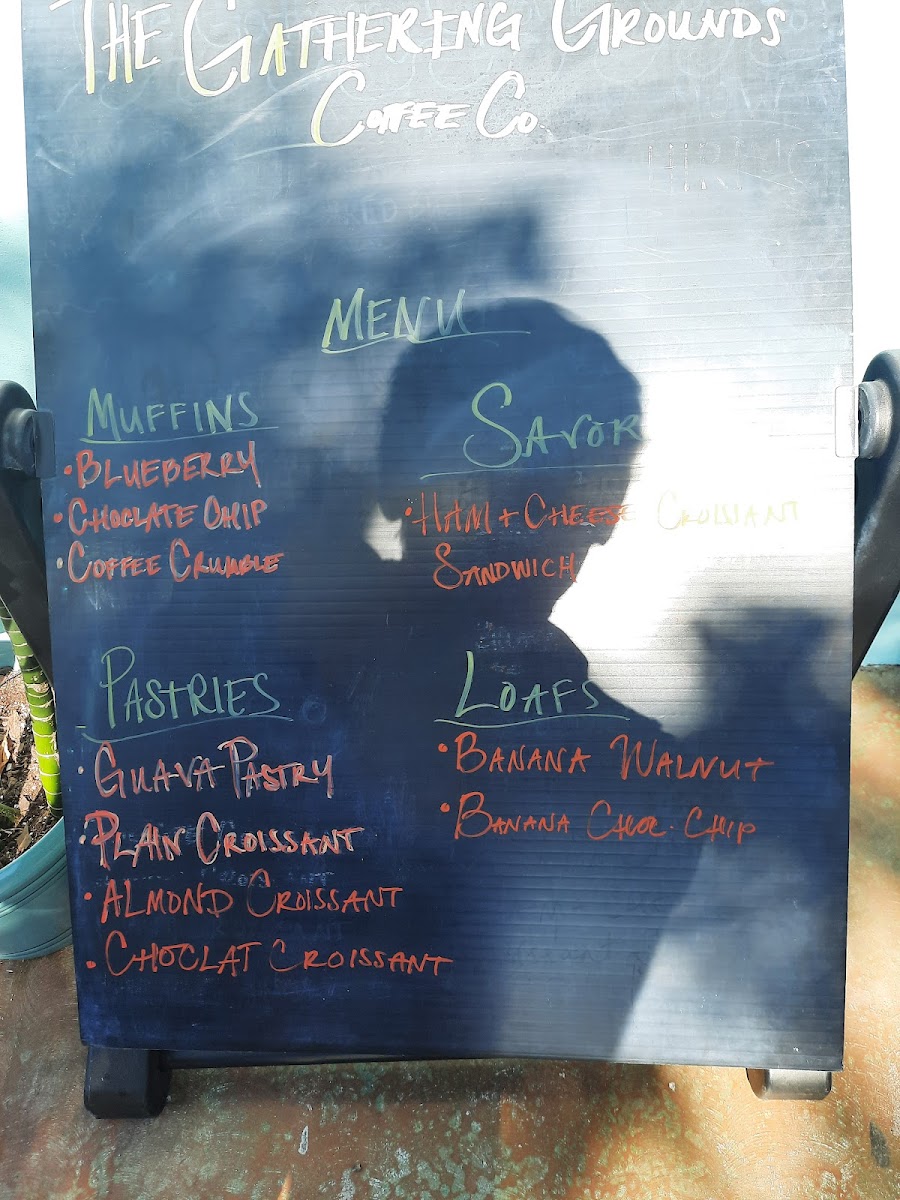 THE GATHERING GROUNDS
COFFEE CO.
MENU
MUFFINS
• BLUEBERRY
• CHOCLATE CHIP
• COFFEE CRUMBLE
SAVOR
• HAM + CHEESE CROISSANT
SANDWICH
PASTRIES
• GUAVA PASTRY
• PLAIN CROISSANT
• ALMOND CROISSANT
• CHOCLAT CROISSANT
LOAFS
• BANANA WALNUT
• BANANA CHOC. CHIP